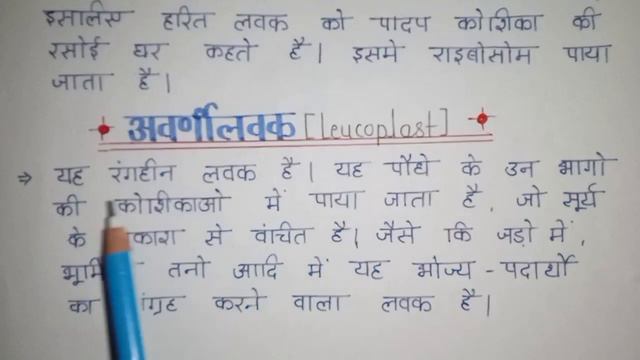 इसलिए हरित लवक को पादप कोशिका की
रसोई घर कहते है। इसमे राइबोसोम पाया
जाता है।
अवर्णीलवक [leucoplast]
⇒ यह रंगहीन लवक है। यह पौधे के उन भागो
की कोशिकाओ में पाया जाता है, जो सूर्य
के काश से वंचित है। जैसे कि जड़ो में,
तनो आदि में यह भोज्य - पदार्थो
का करने वाला लवक है।